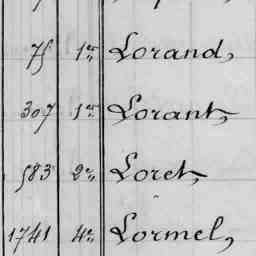 75 1er Lorand,
307 1er Lorant,
583 2e Loret,
1741 4e Lormel,